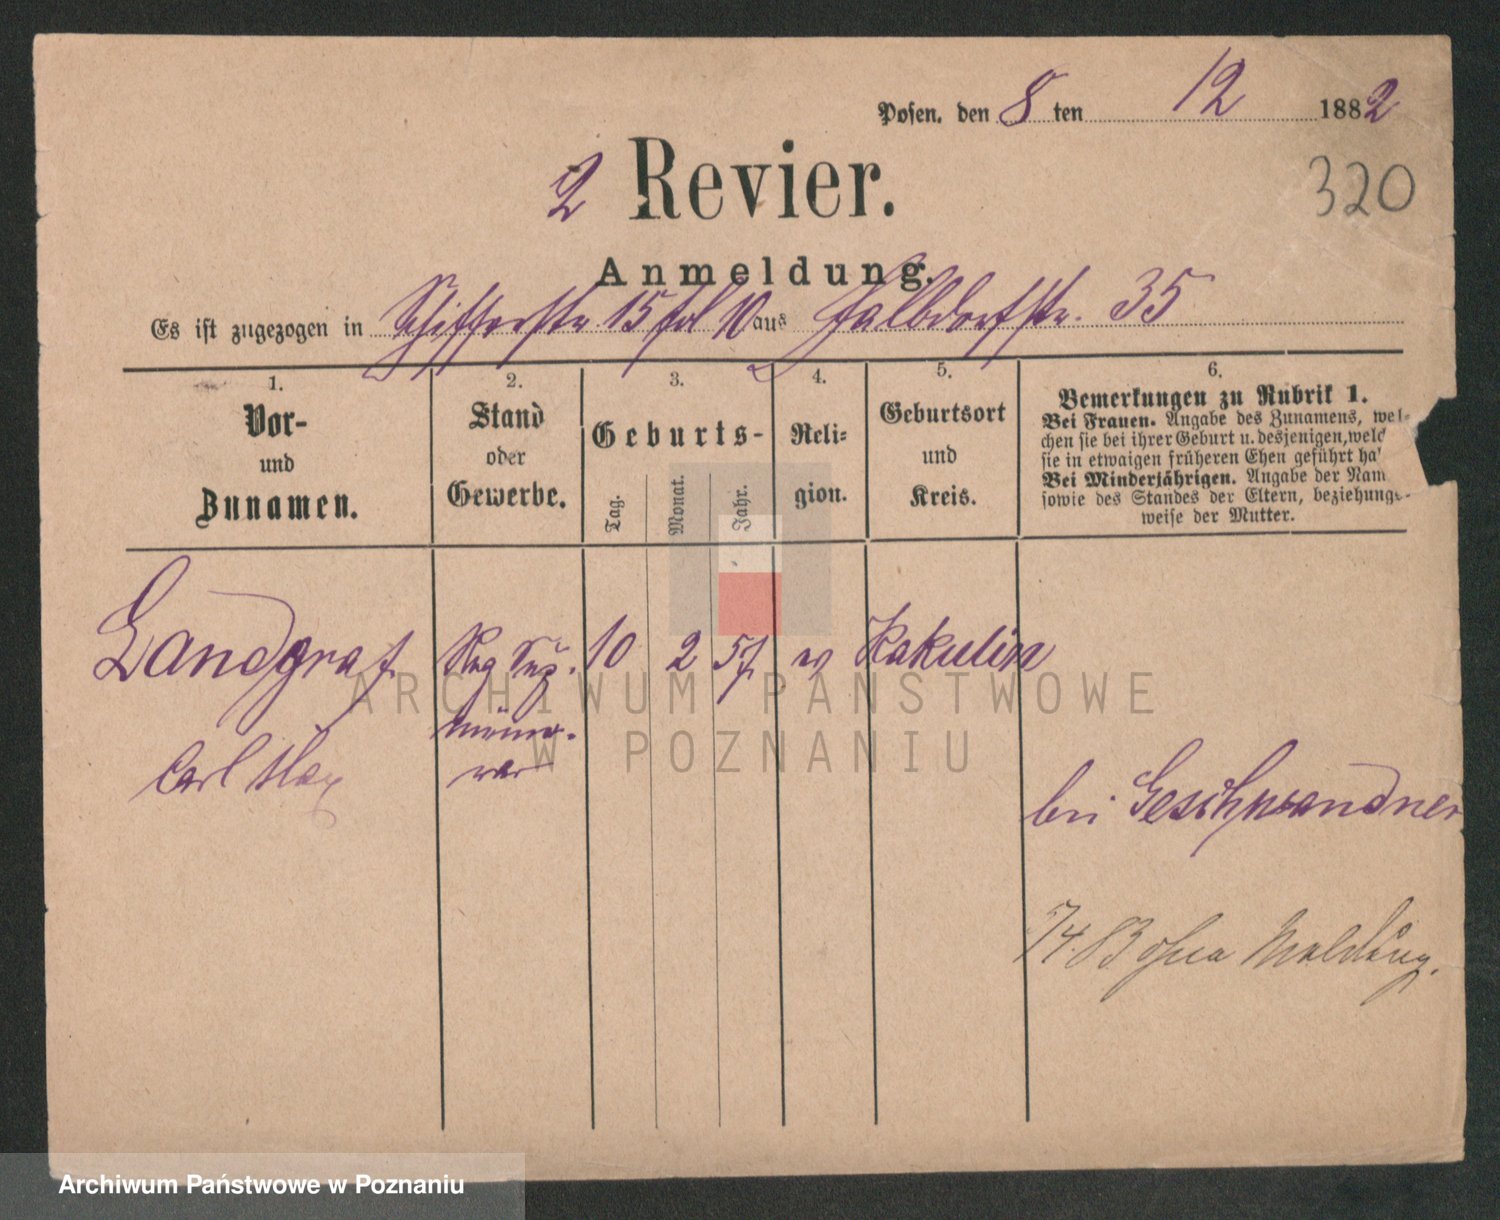 Posen, den 8 ten 12 1882
320
2 Revier.
Anmeldung.
Es ist zugezogen in Schifferstr. 15 fol 10 aus Halbdorfstr. 35
1.
Vor-
und
Zunamen.
2.
Stand
oder
Gewerbe.
3.
Geburts-
Tag.
Monat.
Jahr.
4.
Reli-
gion.
5.
Geburtsort
und
Kreis.
6.
Bemerkungen zu Rubrik 1.
Bei Frauen. Angabe des Zunamens, wel-
chen sie bei ihrer Geburt u. desjenigen, welc
sie in etwaigen früheren Ehen geführt ha
Bei Minderjährigen. Angabe der Nam
sowie des Standes der Eltern, beziehungs-
weise der Mutter.
Landgraf Reg Sup. 10 2 57 ev Kakulin
Carl Max
bei Geschwandner
5/4. 83 ohne Meldung.
ARCHIWUM PAŃSTWOWE
W POZNANIU
Archiwum Państwowe w Poznaniu